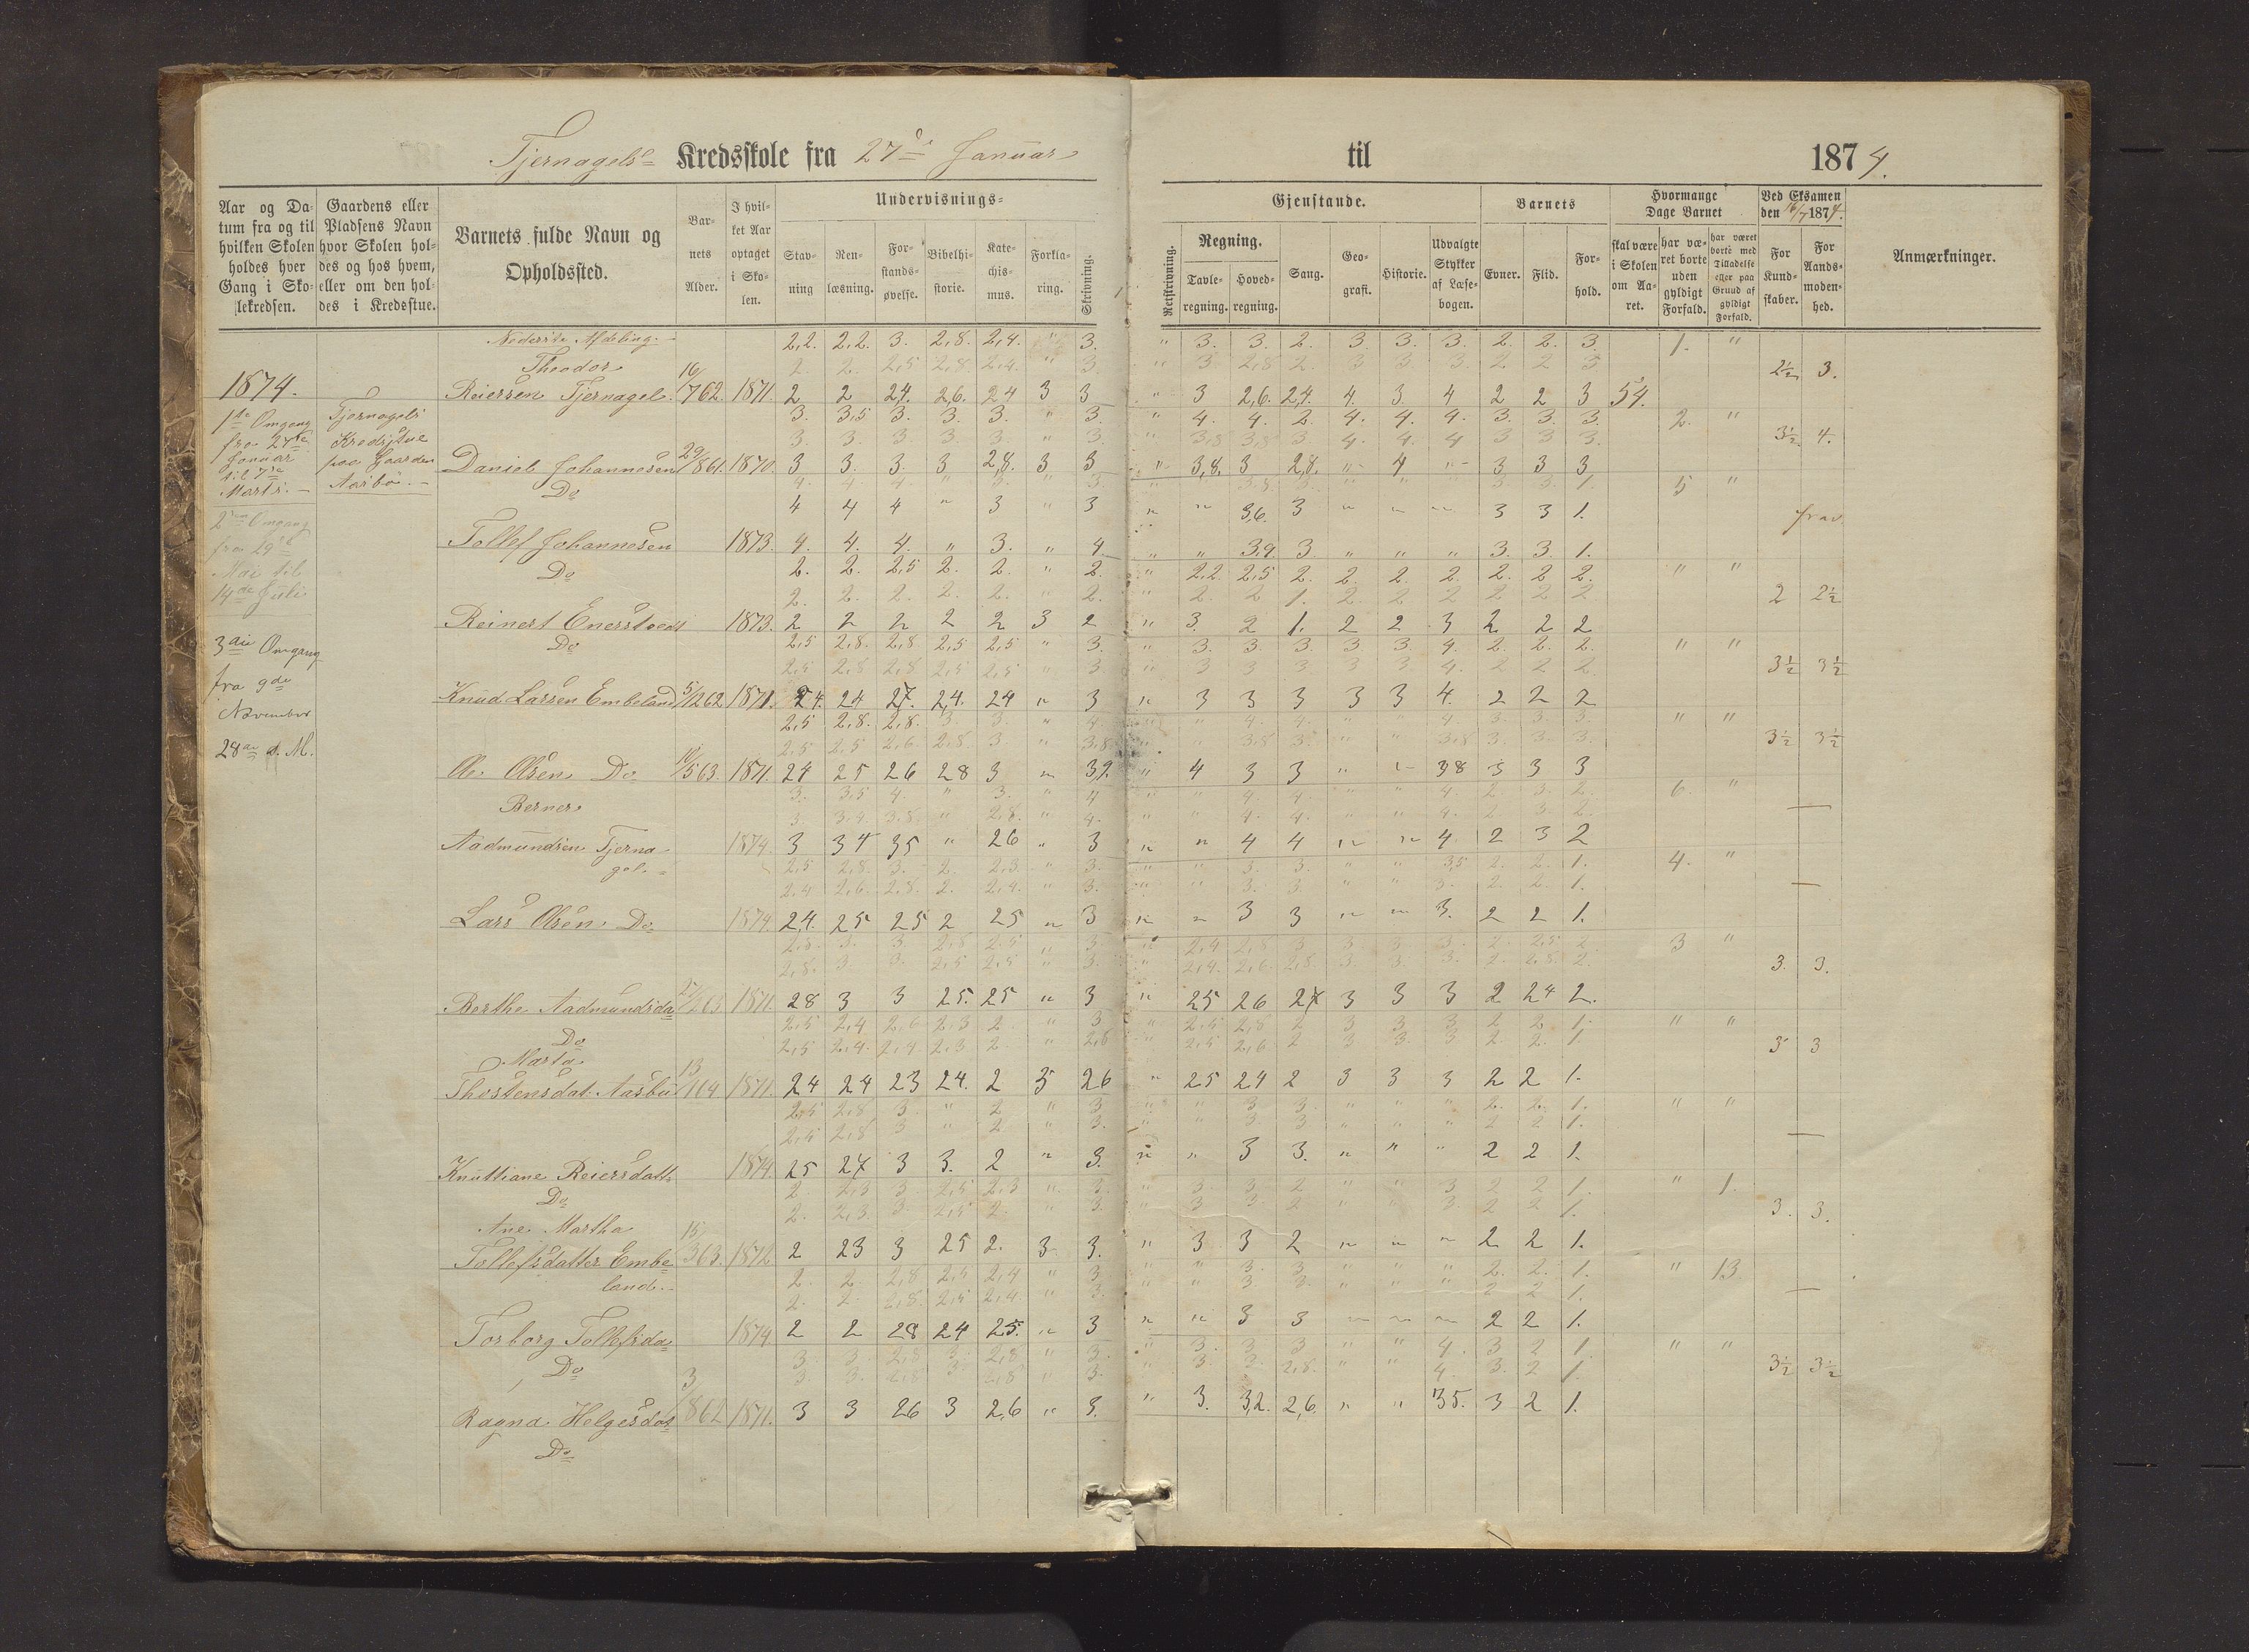 Tjernagels Kredsskole fra 27de Januar til 1874.
Aar og Datum fra og til hvilken Skolen holdes hver Gang i Skolekredsen.
Gaardens eller Pladsens Navn hvor Skolen holdes og hos hvem, eller om den holdes i Kredsstue.
Barnets fulde Navn og Opholdssted.
Barnets Alder.
I hvilket Aar optaget i Skolen.
Undervisnings-
Stavning
Renlæsning.
Forstandsøvelse.
Bibelhistorie.
Katechismus.
Forklaring.
Skrivning.
Gjenstande.
Retskrivning.
Regning.
Tavleregning.
Hovedregning.
Sang.
Geografi.
Historie.
Udvalgte Stykker af Læsebogen.
Barnets
Evner.
Flid.
Forhold.
Hvormange Dage Barnet
skal være i Skolen om Aaret.
har været borte uden gyldigt Forfald.
har været borte med Tilladelse eller paa Grund af gyldigt Forfald.
Ved Eksamen den 16/7 1874.
For Kundskaber.
For Aandsmodenhed.
Anmærkninger.
Nederste Afdeling.
2,2. 2,2. 3. 2,8. 2,4. " 3. " 3. 3. 2. 3. 3. 3. 2. 2. 3. 1. "
Theodor
2. 2. 2,5 2,8. 2,4. " 3. " 3 2,8 2. 3 3 3. 2 2 3 2½ 3.
1874.
Reiersen Tjernagel. 16/762. 1871. 2 2 2,4. 2,6. 24 3 3 " 3 2,6. 2,4. 4. 3. 4 2 2 3 54.
3. 3,5 3. 3. 3. " 3. " 4. 4. 2. 4. 4. 4. 3. 3. 3. 2. "
1ste Omgang
fra 27de
Januar
til 7de
Marts. –
Tjernagels
Kredsstue
paa Gaarden
Aasbø. –
3. 3. 3 3. 3. " 3. " 3,8 3,8 3 4. 4. 4 3 3 3. 3½ 4.
Daniel Johannesen 29/861. 1870. 3 3. 3. 3 2,8. 3 3 " 3,8. 3 2,8. " 4 " 3 3 3
Do
5 "
4 4 4 " 3 " 3 " " 3,6. 3 " " " 3 3 1. frav.
2den Omgang
fra 29de
Mai til
14de Juli
Tollef Johannesen 1873. 4. 4. 4. " 3. " 4 " " 3,9. 3. " " " 3. 3. 1.
Do
2. 2. 2,5 2. 2. " 2. " 2,2. 2,5 2. 2. 2. 2. 2. 2 2. " "
2. 2. 2. 2. 2. " 2. " 2. 2 1. 2. 2 2 2 2 2 2 2½
Reinert Enerstvedt 1873. 2 2 2 2 2 3 2 " 3. 2 1. 2 2 3 2 2 2
Do
2,5 2,8. 2,8 2,5 2,5 " 3. " 3. 3. 3. 3. 3 4. 2. 2. 2. " "
3die Omgang
fra 9de
November
28de d. M.
2,5 2,8 2,8 2,5 2,5 " 3 " 3 3 3 3 3. 4. 2 2 2 3½ 3½
Knud Larsen Embeland 5/1262 1871. 24. 24 27. 2,4. 24 " 3 " 3 3 3 3 3 4. 2 2 2
2,5 2,8. 2,8. 3. 3. " 4. " " 4. 4. " " 4. 3. 3. 3. " "
2,5 2,5 2,6 2,8 3 " 3,8 " " 3,8 3. " " 3,8 3. 3. 3. 3½ 3½
Ole Olsen Do 10/563. 1871. 24 25 26 28 3 " 3,9. " 4 3 3 " " 38 3 3 3
3. 3,5 4. " 3. " 4 " " 4. 4. " " 4. 2. 3. 2. 6. "
Berner
3. 3,4. 3,8. " 2,8. " 4. " " 4. 4. " " 4. 2 3. 2. —
Aadmundsen Tjernagel. 1874. 3 34 35 " 26 " 3 " " 4 4 " " 4. 2 3 2
2,5 2,8. 3. 2. 2,3. " 3. " " 3. 3. " " 3,5 2. 2. 1. 4. "
2,4 2,6. 2,8. 2. 2,4. " 3. " " 3. 3. " " 3. 2. 2. 1. —
Lars Olsen Do 1874. 2,4. 25 25 2 25 " 3 " " 3 3 " " 3. 2 2 1.
2,8. 3. 3. 2,8 2,5 " 3 " 2,4 2,8 3 3. 3. 3. 2. 2,5 2 3 "
2,8. 3 3. 2,5 2,5 " 3. " 2,4. 2,6. 2,8. 3 3. 3. 2. 2,8. 2. 3. 3.
Berthe Aadmundsda 1871. 28 3 3 25. 25 " 3 " 25 26 27 3 3 3 2 24 2.
Do
2,5 2,4 2,6 2,3 2 " 3 " 2,5 2,8 2 3 3 3 2 2 1. " "
2,5 2,4. 2,4. 2,3. 2 " 2,6 " 2,5 2,6 2 3 3. 3 2. 2. 1 3 3
Marta
Thostensdat. Aasbø 13/164 1871. 24 24 23 24. 2 3 26 " 25 24 2 3 3 3 2 2 1.
2,5 2,8 3. " 2 " 3 " " 3 3. " " " 2. 2. 1. " "
2,5 2,8 3 " 2 " 3. " " 3 3 " " " 2 2 1. —
Knuttiane Reiersdatt. 1874. 25 27 3 3. 2 " 3. " " 3 3. " " " 2 2 1.
Do
2. 2,3 3 2,5 2,3 " 3. " 3. 3. 2 " " 3 2 2 1. " 1.
2. 2,3. 3. 2,5 2. " 3. " 3 3 2 " " 3. 2 2 1. 3. 3.
Ane Martha
Tollefsdatter Embeland. 15/363. 1872. 2 23 3 25 2. 3 3. " 3 3 2 " " " 2 2 1.
2. 2. 2,8 2,5 2,4 " 3 " " 3. 3 " " " 2. 2. 1. " 13
2. 2. 2,8. 2,5 2,4. " 3. " " 3. 3. " " " 2 2 1. —
Torborg Tollefsda 1874 2 2 28 24 25. " 3 " " 3 3 " " " 2 2 1.
Do
3. 3. 2,8 3. 2,8 " 3. " 3. 3 3 " " 4. 3 2 1. " "
3. 3. 2,8 3. 2,8 " 3. " 3. 3. 2,8. " " 4. 3. 2 1. 3½ 3½
Ragna Helgesdat 3/862 1871. 3 3 26 3 2,6 " 3. " 3. 3,2. 2,6. " " 35. 3 2 1.
Do